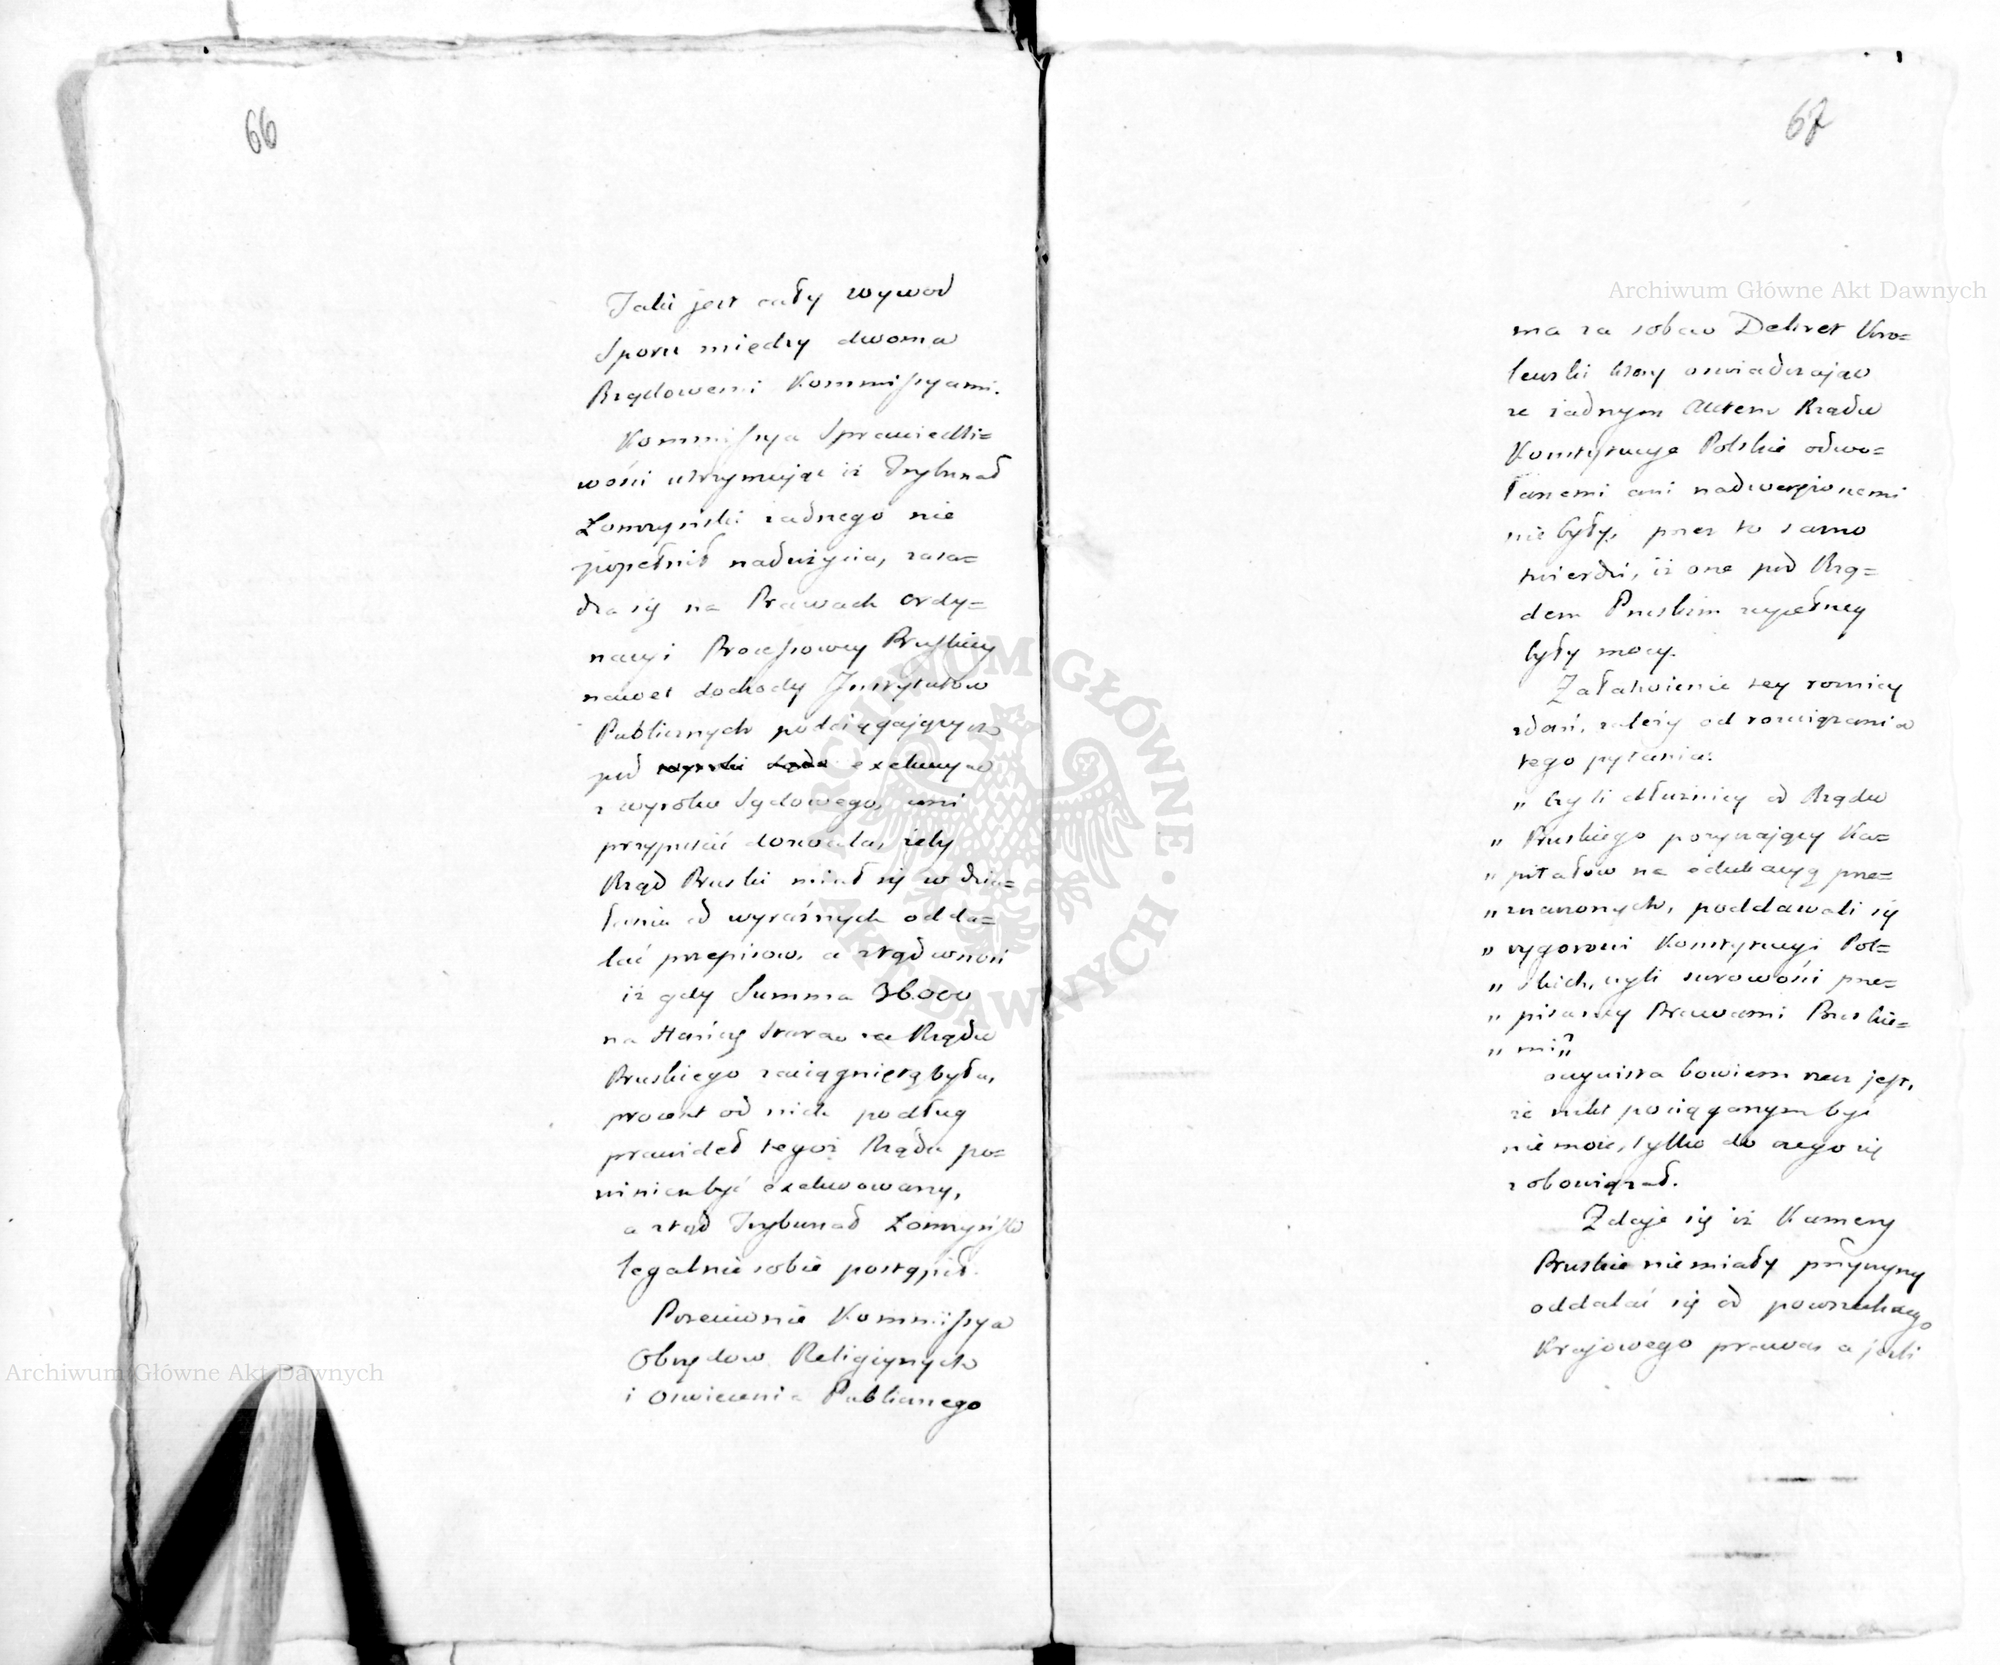 66
Taki jest cały wywod
Sporu między dwoma
Rządowemi Kommissyami.
Kommissya Sprawiedli=
wości utrzymując iż Trybunał
Łomżyński żadnego nie
popełnił nadużycia, zasa=
dza się na Prawach Ordy=
nacyi Processowey Pruskiey
nawet dochody Instytutow
Publicznych podciągających
pod exekucyą
z wyroku Sądowego, ani
przypuścić dozwala, żeby
Rząd Pruski miał się w dzia=
łaniu od wyraźnych odda=
lać przepisow, a ztąd wnosi
iż gdy Summa 36.000
na Stacią za Rządu
Pruskiego zaciągniętą była,
procent od nich podług
prawideł tegoż Rządu po=
winien być exekwowany,
a ztąd Trybunał Łomżyński
legalnie sobie postąpił.
Przeciwnie Kommissya
Obrzędow Religiynych
i Oswiecenia Publicznego
67
Archiwum Główne Akt Dawnych
ma za sobą Dekret Kro=
lewski ktory oswiadczając
że żadnym Aktem Rządu
Konstytucye Polskie odwo=
łanemi ani nadwerężonemi
nie były, przez to samo
twierdzi, iż one pod Rzą=
dem Pruskim zupełney
były mocy.
Załatwienie tey rożnicy
zdań, zależy od rozwiązania
tego pytania:
„ Czyli dłużnicy od Rządu
„ Pruskiego pożyczający Ka=
„ pitałow na edukacyą prze=
„ znaczonych, poddawali się
„ rygorowi Konstytucyi Pol=
„ skich, czyli surowości prze=
„ pisaney Prawami Pruskie=
„ mi?"
oczywista bowiem rzecz jest,
że nikt pociąganym być
nie może, tylko do czego się
zobowiązał.
Zdaje się iż Kamery
Pruskie nie miały przyczyny
oddalać się od powszechnego
Krajowego prawa, a jeśli
Archiwum Główne Akt Dawnych
ARCHIWUM GŁÓWNE AKT DAWNYCH